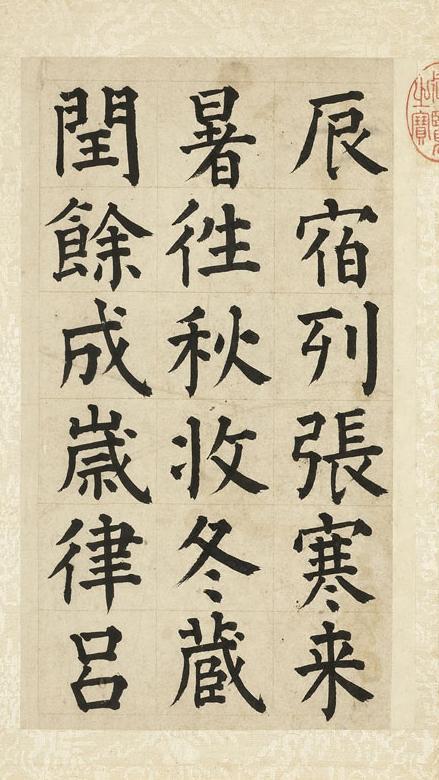 辰宿列張寒来
暑徃秋收冬蔵
閏餘成歳律呂